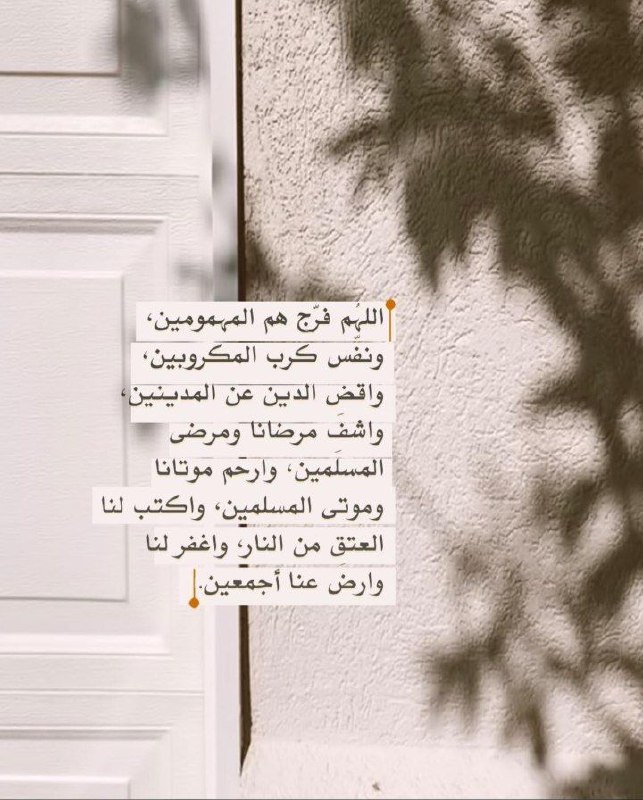 اللهُم فرّج هم المهمومين،
ونفّس كرب المكروبين،
واقضِ الدين عن المدينين،
واشفَ مرضانا ومرضى
المسلمين، وارحم موتانا
وموتى المسلمين، واكتب لنا
العتق من النار، واغفر لنا
وارضِ عنا أجمعين.